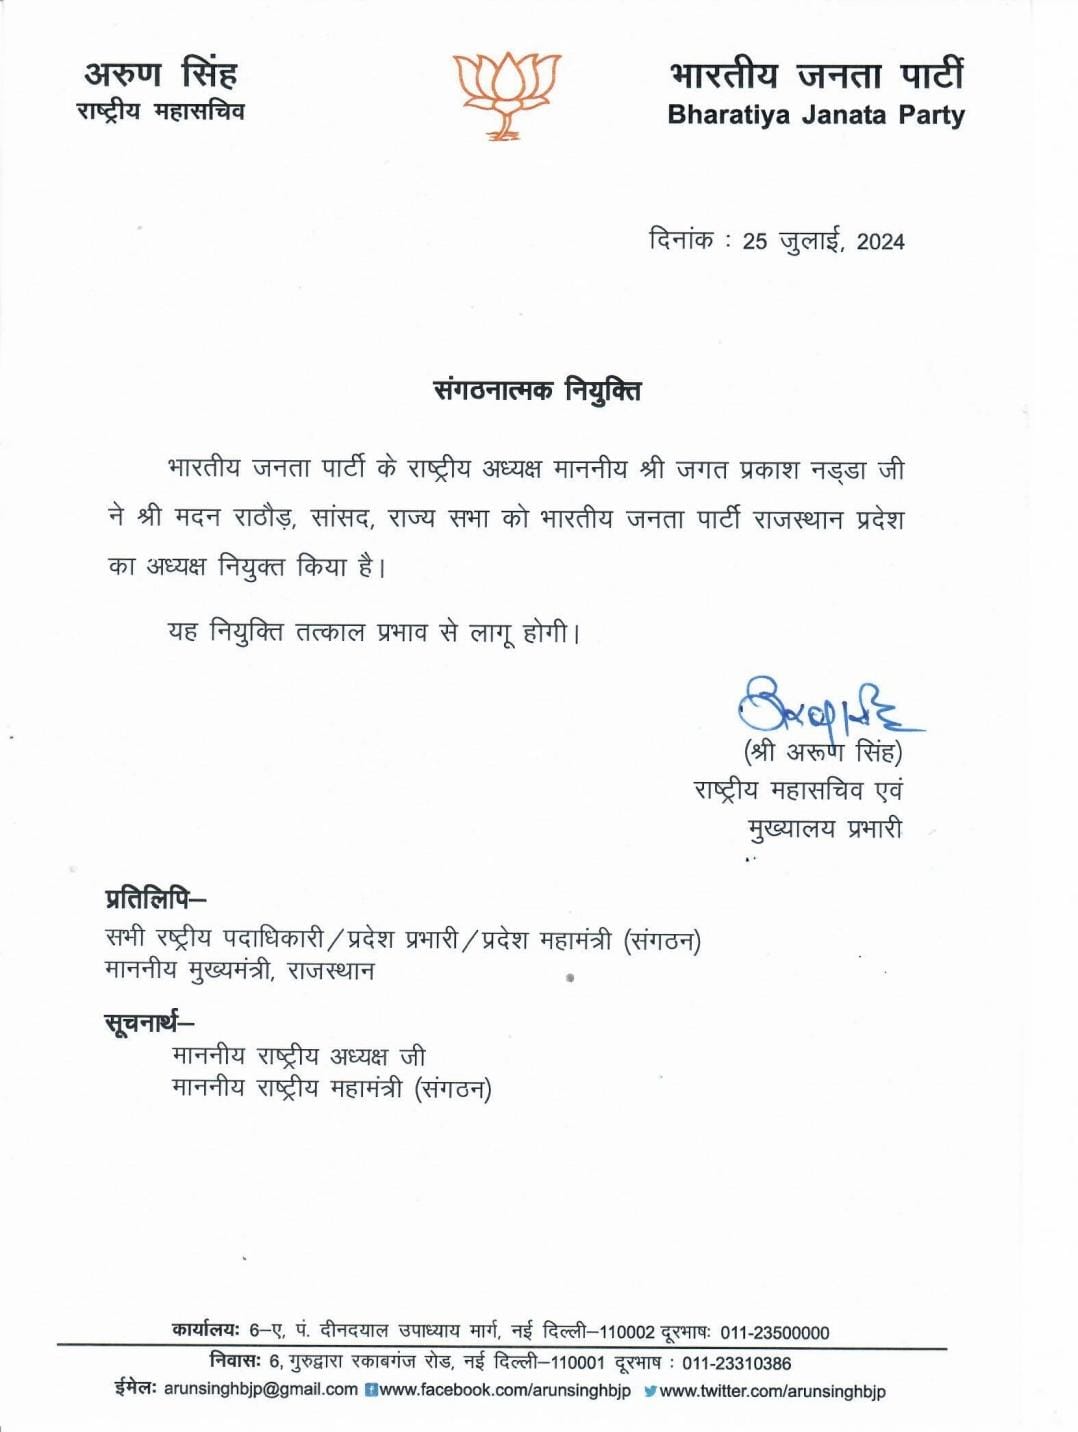 अरुण सिंह
राष्ट्रीय महासचिव
भारतीय जनता पार्टी
Bharatiya Janata Party
दिनांक : 25 जुलाई, 2024
संगठनात्मक नियुक्ति
भारतीय जनता पार्टी के राष्ट्रीय अध्यक्ष माननीय श्री जगत प्रकाश नड्डा जी
ने श्री मदन राठौड़, सांसद, राज्य सभा को भारतीय जनता पार्टी राजस्थान प्रदेश
का अध्यक्ष नियुक्त किया है।
यह नियुक्ति तत्काल प्रभाव से लागू होगी।
(श्री अरूण सिंह)
राष्ट्रीय महासचिव एवं
मुख्यालय प्रभारी
प्रतिलिपि–
सभी रष्ट्रीय पदाधिकारी/प्रदेश प्रभारी/प्रदेश महामंत्री (संगठन)
माननीय मुख्यमंत्री, राजस्थान
सूचनार्थ–
माननीय राष्ट्रीय अध्यक्ष जी
माननीय राष्ट्रीय महामंत्री (संगठन)
कार्यालयः 6–ए, पं. दीनदयाल उपाध्याय मार्ग, नई दिल्ली–110002 दूरभाषः 011-23500000
निवासः 6, गुरुद्वारा रकाबगंज रोड, नई दिल्ली–110001 दूरभाष : 011-23310386
ईमेलः arunsinghbjp@gmail.com www.facebook.com/arunsinghbjp www.twitter.com/arunsinghbjp